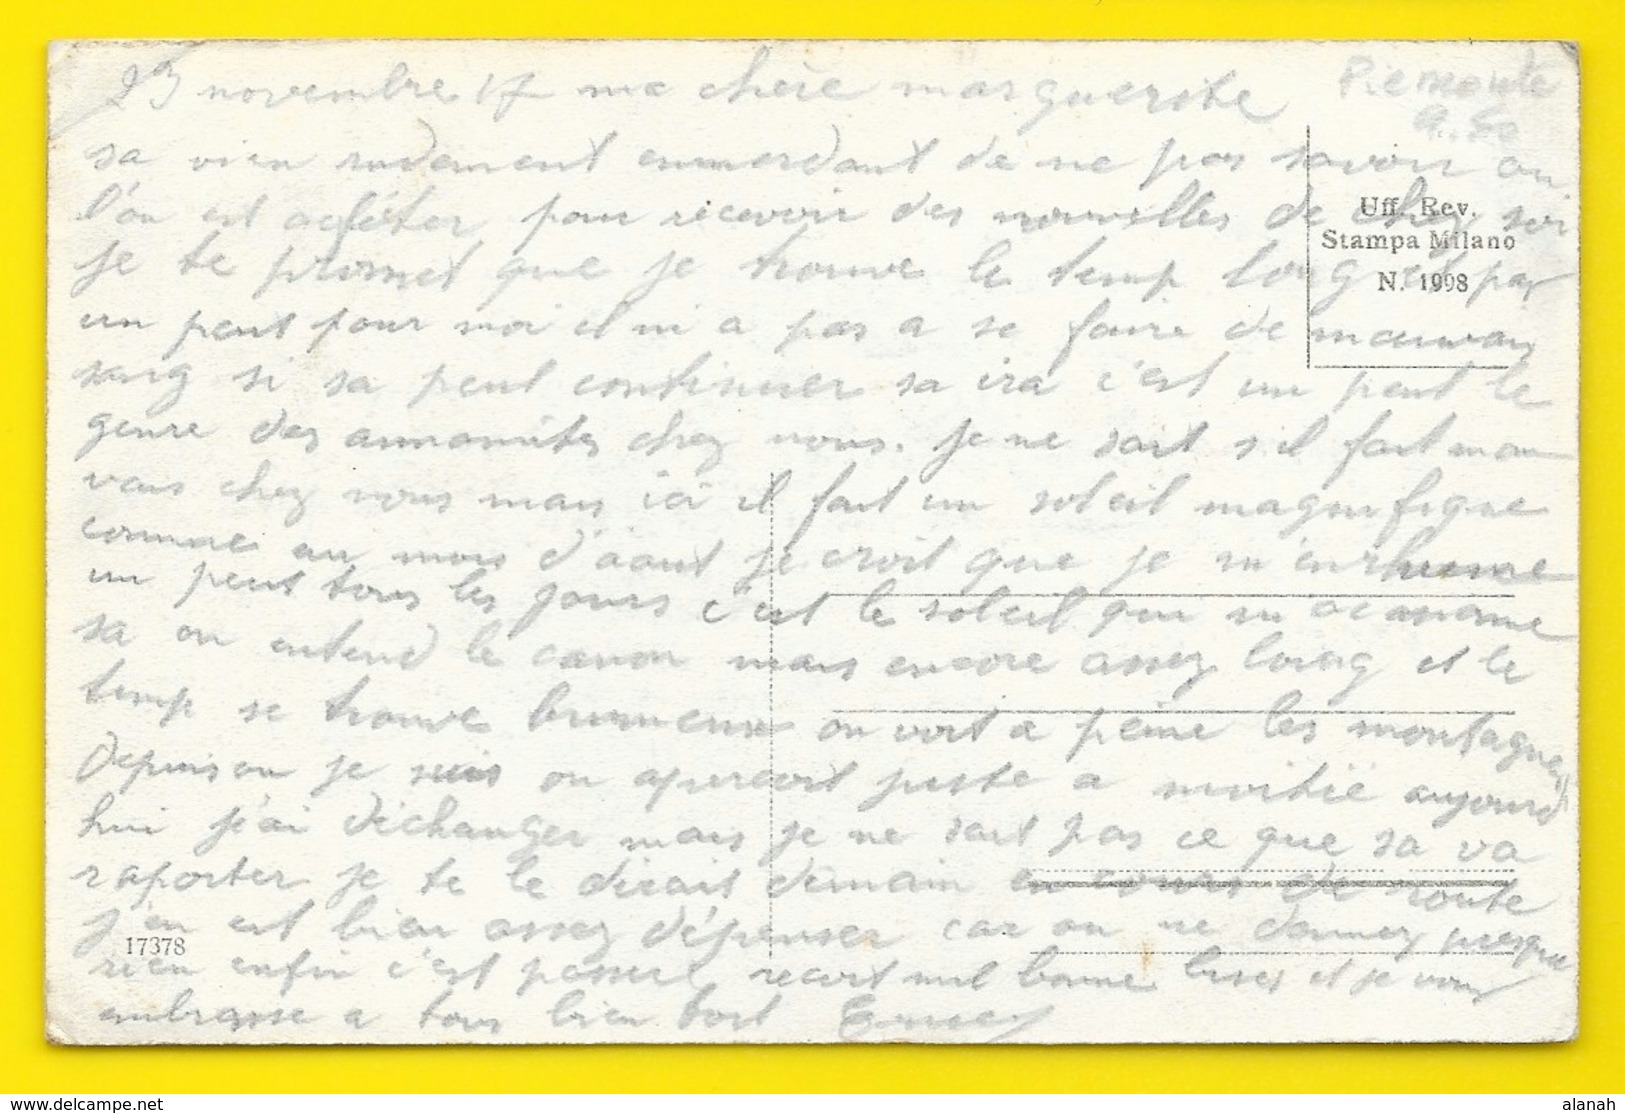 23 novembre 17 ma chère marguerite Piemonte
sa vien rudement emmerdant de ne pas savoir ou
l'on est acféter pour recevoir des nouvelles de chez soi
je te promet que je trouve le temp long et pas
un peut pour moi il ni a pas a se faire de mauvais
sang si sa peut continuer sa ira c'est un peut le
genre des annamites chez nous. je ne sait s'il fait mau
vais chez vous mais ici il fait un soleil magnifique
comme au mois d'aout je croit que je m'enrhume
un peut tous les jours c'est le soleil qui m'ocasione
sa on entend le canon mais encore assez loing et le
temp se trouve brumeux on voit a peine les montagnes
depuis ou je suis on apercoit juste a moitié aujourd'
hui j'ai déchanger mais je ne sait pas ce que sa va
raporter je te le dirait demain en cours de route
j'en est bien assez dépenser car on ne donnez presque
rien enfin c'est passer recoit mil bonne bises et je vous
embrasse a tous bien fort
Uff. Rev.
Stampa Milano
N. 1998
17378
alanah